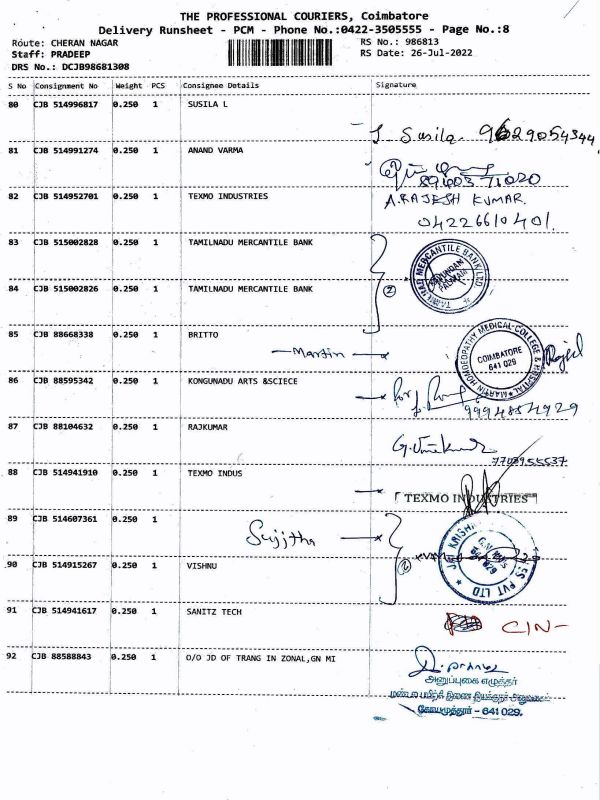 THE PROFESSIONAL COURIERS, Coimbatore
Delivery Runsheet - PCM - Phone No.:0422-3505555 - Page No.:8
Route: CHERAN NAGAR
RS No.: 986813
Staff: PRADEEP
RS Date: 26-Jul-2022
DRS No.: DCJB98681308
S No Consignment No Weight PCS Consignee Details Signature
80 CJB 514996817 0.250 1 SUSILA L
Susila 9629054344
81 CJB 514991274 0.250 1 ANAND VARMA
82 CJB 514952701 0.250 1 TEXMO INDUSTRIES A.RAJESH KUMAR.
04226610401.
83 CJB 515002828 0.250 1 TAMILNADU MERCANTILE BANK
TAMILNAD MERCANTILE BANK LTD
2
84 CJB 515002826 0.250 1 TAMILNADU MERCANTILE BANK
85 CJB 88668338 0.250 1 BRITTO
Martin
MARTIN HOMOEOPATHY MEDICAL COLLEGE & HOSPITAL
COIMBATORE
641 029
86 CJB 88595342 0.250 1 KONGUNADU ARTS &SCIECE
87 CJB 88104632 0.250 1 RAJKUMAR
88 CJB 514941910 0.250 1 TEXMO INDUS
TEXMO INDUSTRIES
89 CJB 514607361 0.250 1
Sujitha
90 CJB 514915267 0.250 1 VISHNU
2
91 CJB 514941617 0.250 1 SANITZ TECH
92 CJB 88588843 0.250 1 O/O JD OF TRANG IN ZONAL,GN MI
அனுப்புகை எழுத்தர்
கோயமுத்தூர் - 641 029.